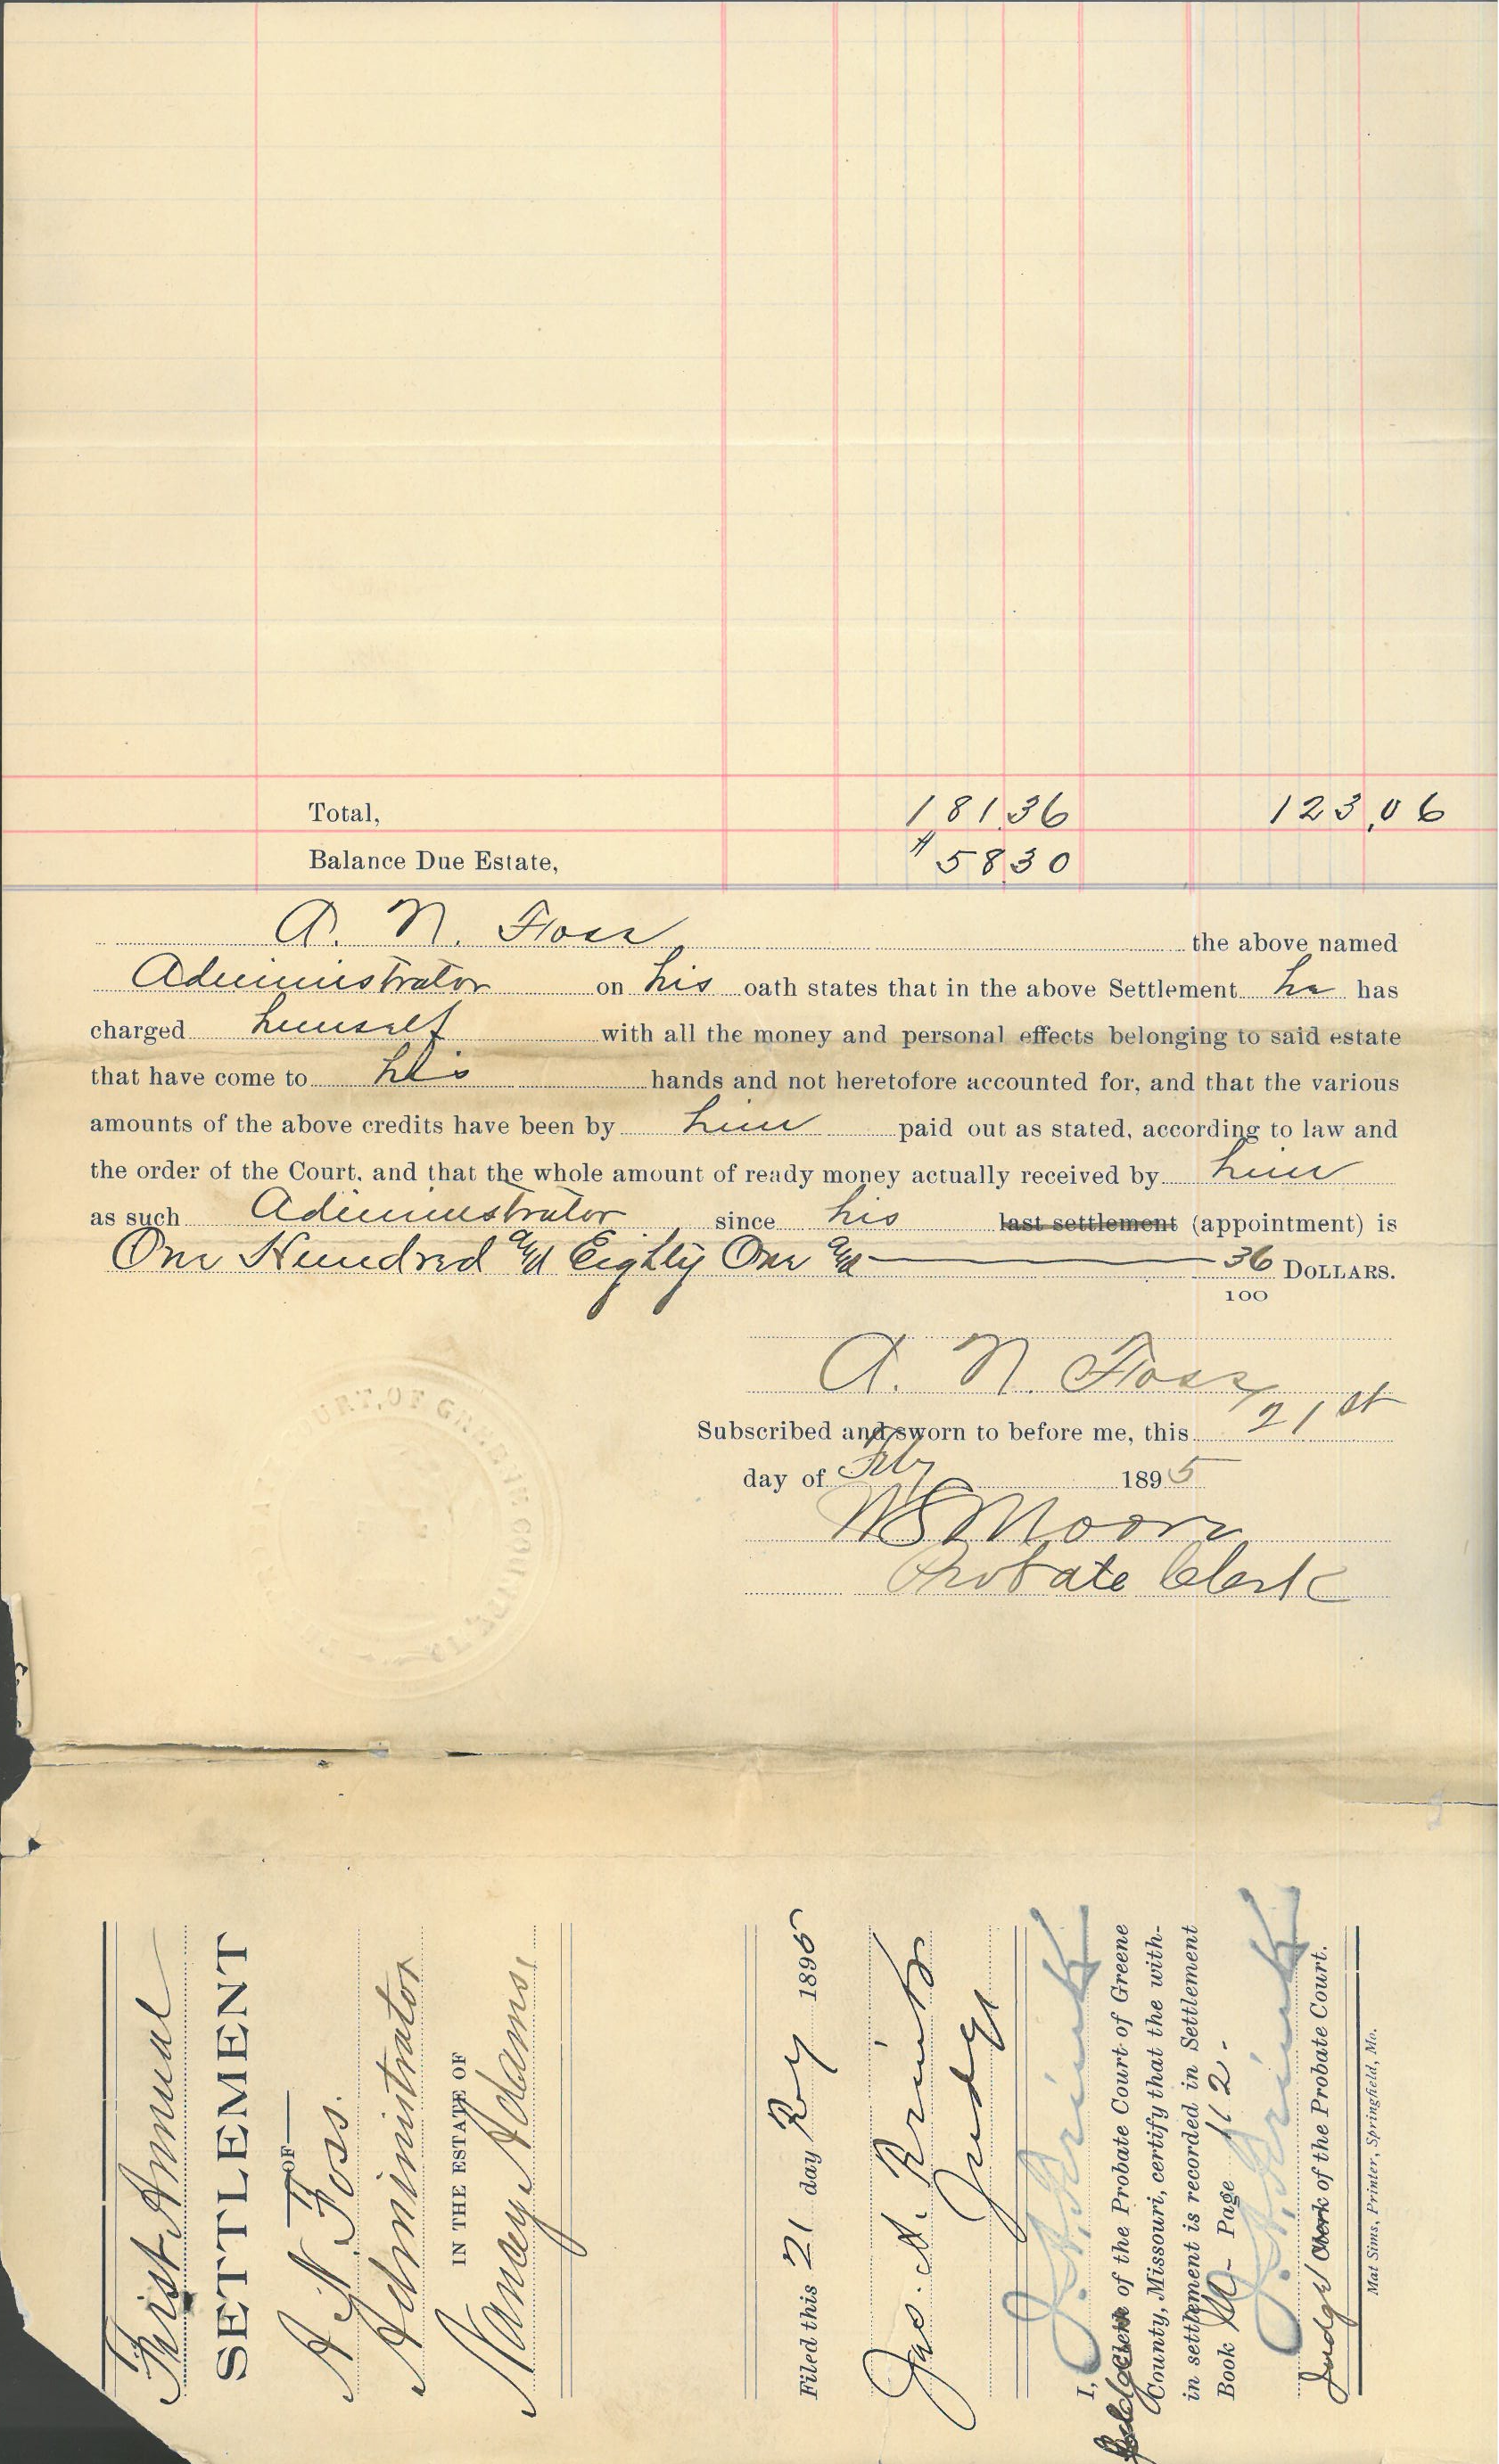 Total, 181.36 123.06
Balance Due Estate, $58.30
A. N. Foss the above named
Administrator on his oath states that in the above Settlement he has
charged himself with all the money and personal effects belonging to said estate
that have come to his hands and not heretofore accounted for, and that the various
amounts of the above credits have been by him paid out as stated, according to law and
the order of the Court, and that the whole amount of ready money actually received by him
as such Administrator since his last settlement (appointment) is
One Hundred and Eighty One and 36 DOLLARS.
100
A. N. Foss
Subscribed and sworn to before me, this 21st
day of Feby 1895
W S Moore
Probate Clerk
COURT, OF GREENE COUNTY
First Annual
SETTLEMENT
OF
A N Foss.
Administrator
IN THE ESTATE OF
Nancy Adams,
Filed this 21 day 1895
Jac. A.
Judge
I, J. A.
Clerk of the Probate Court of Greene
County, Missouri, certify that the with-
in settlement is recorded in Settlement
Book M - Page 112 -
J. A.
Judge Clerk of the Probate Court.
Mat Sims, Printer, Springfield, Mo.